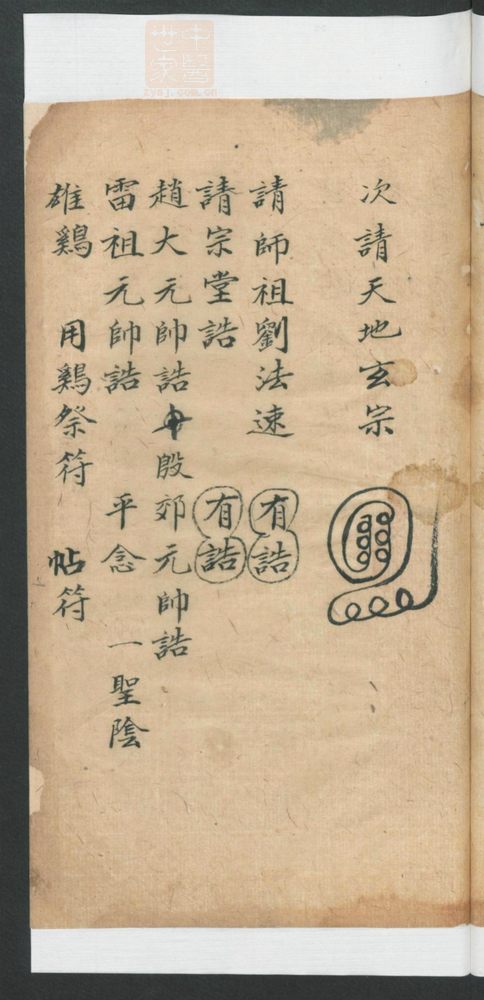 次請天地玄宗
請師祖劉法速 有誥
請宗堂誥 有誥
趙大元帥誥 殷郊元帥誥
雷祖元帥誥 平念 一聖陰
雄鷄 用鷄祭符 帖符
中醫世家
zysj.com.cn